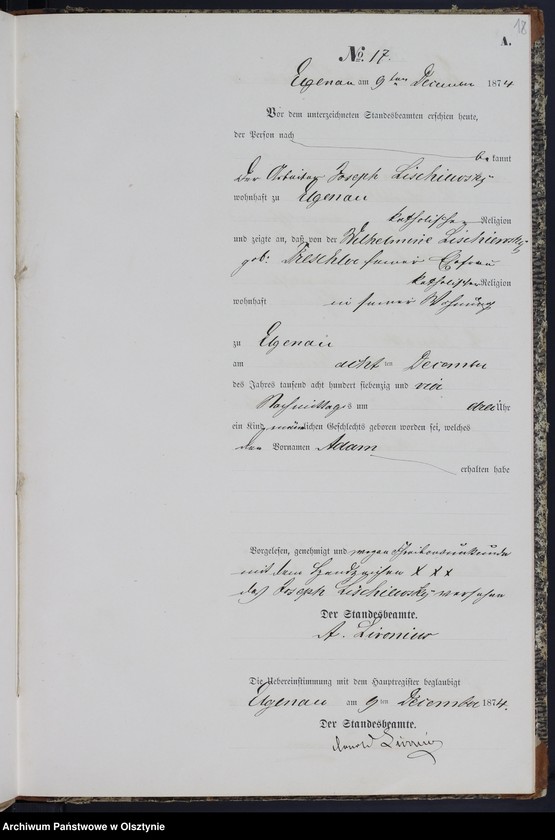 18
A.
No. 17.
Elgenau am 9ten December 1874
Vor dem unterzeichneten Standesbeamten erschien heute,
der Person nach
bekannt
der Arbeiter Joseph Lischiewsky
wohnhaft zu Elgenau
katholischer Religion
und zeigte an, daß von der Wilhelmine Lischiewsky
geb: seiner Ehefrau
katholischer Religion
wohnhaft in seiner Wohnung
zu Elgenau
am acht ten December
des Jahres tausend acht hundert siebenzig und vier
Nachmittags um drei Uhr
ein Kind männlichen Geschlechts geboren worden sei, welches
den Vornamen Adam
erhalten habe
Vorgelesen, genehmigt und wegen Schreibensunkunde
mit dem Handzeichen x x x
des Joseph Lischiewsky versehen
Der Standesbeamte.
A.
Die Uebereinstimmung mit dem Hauptregister beglaubigt
Elgenau am 9ten December 1874.
Der Standesbeamte.
Archiwum Państwowe w Olsztynie